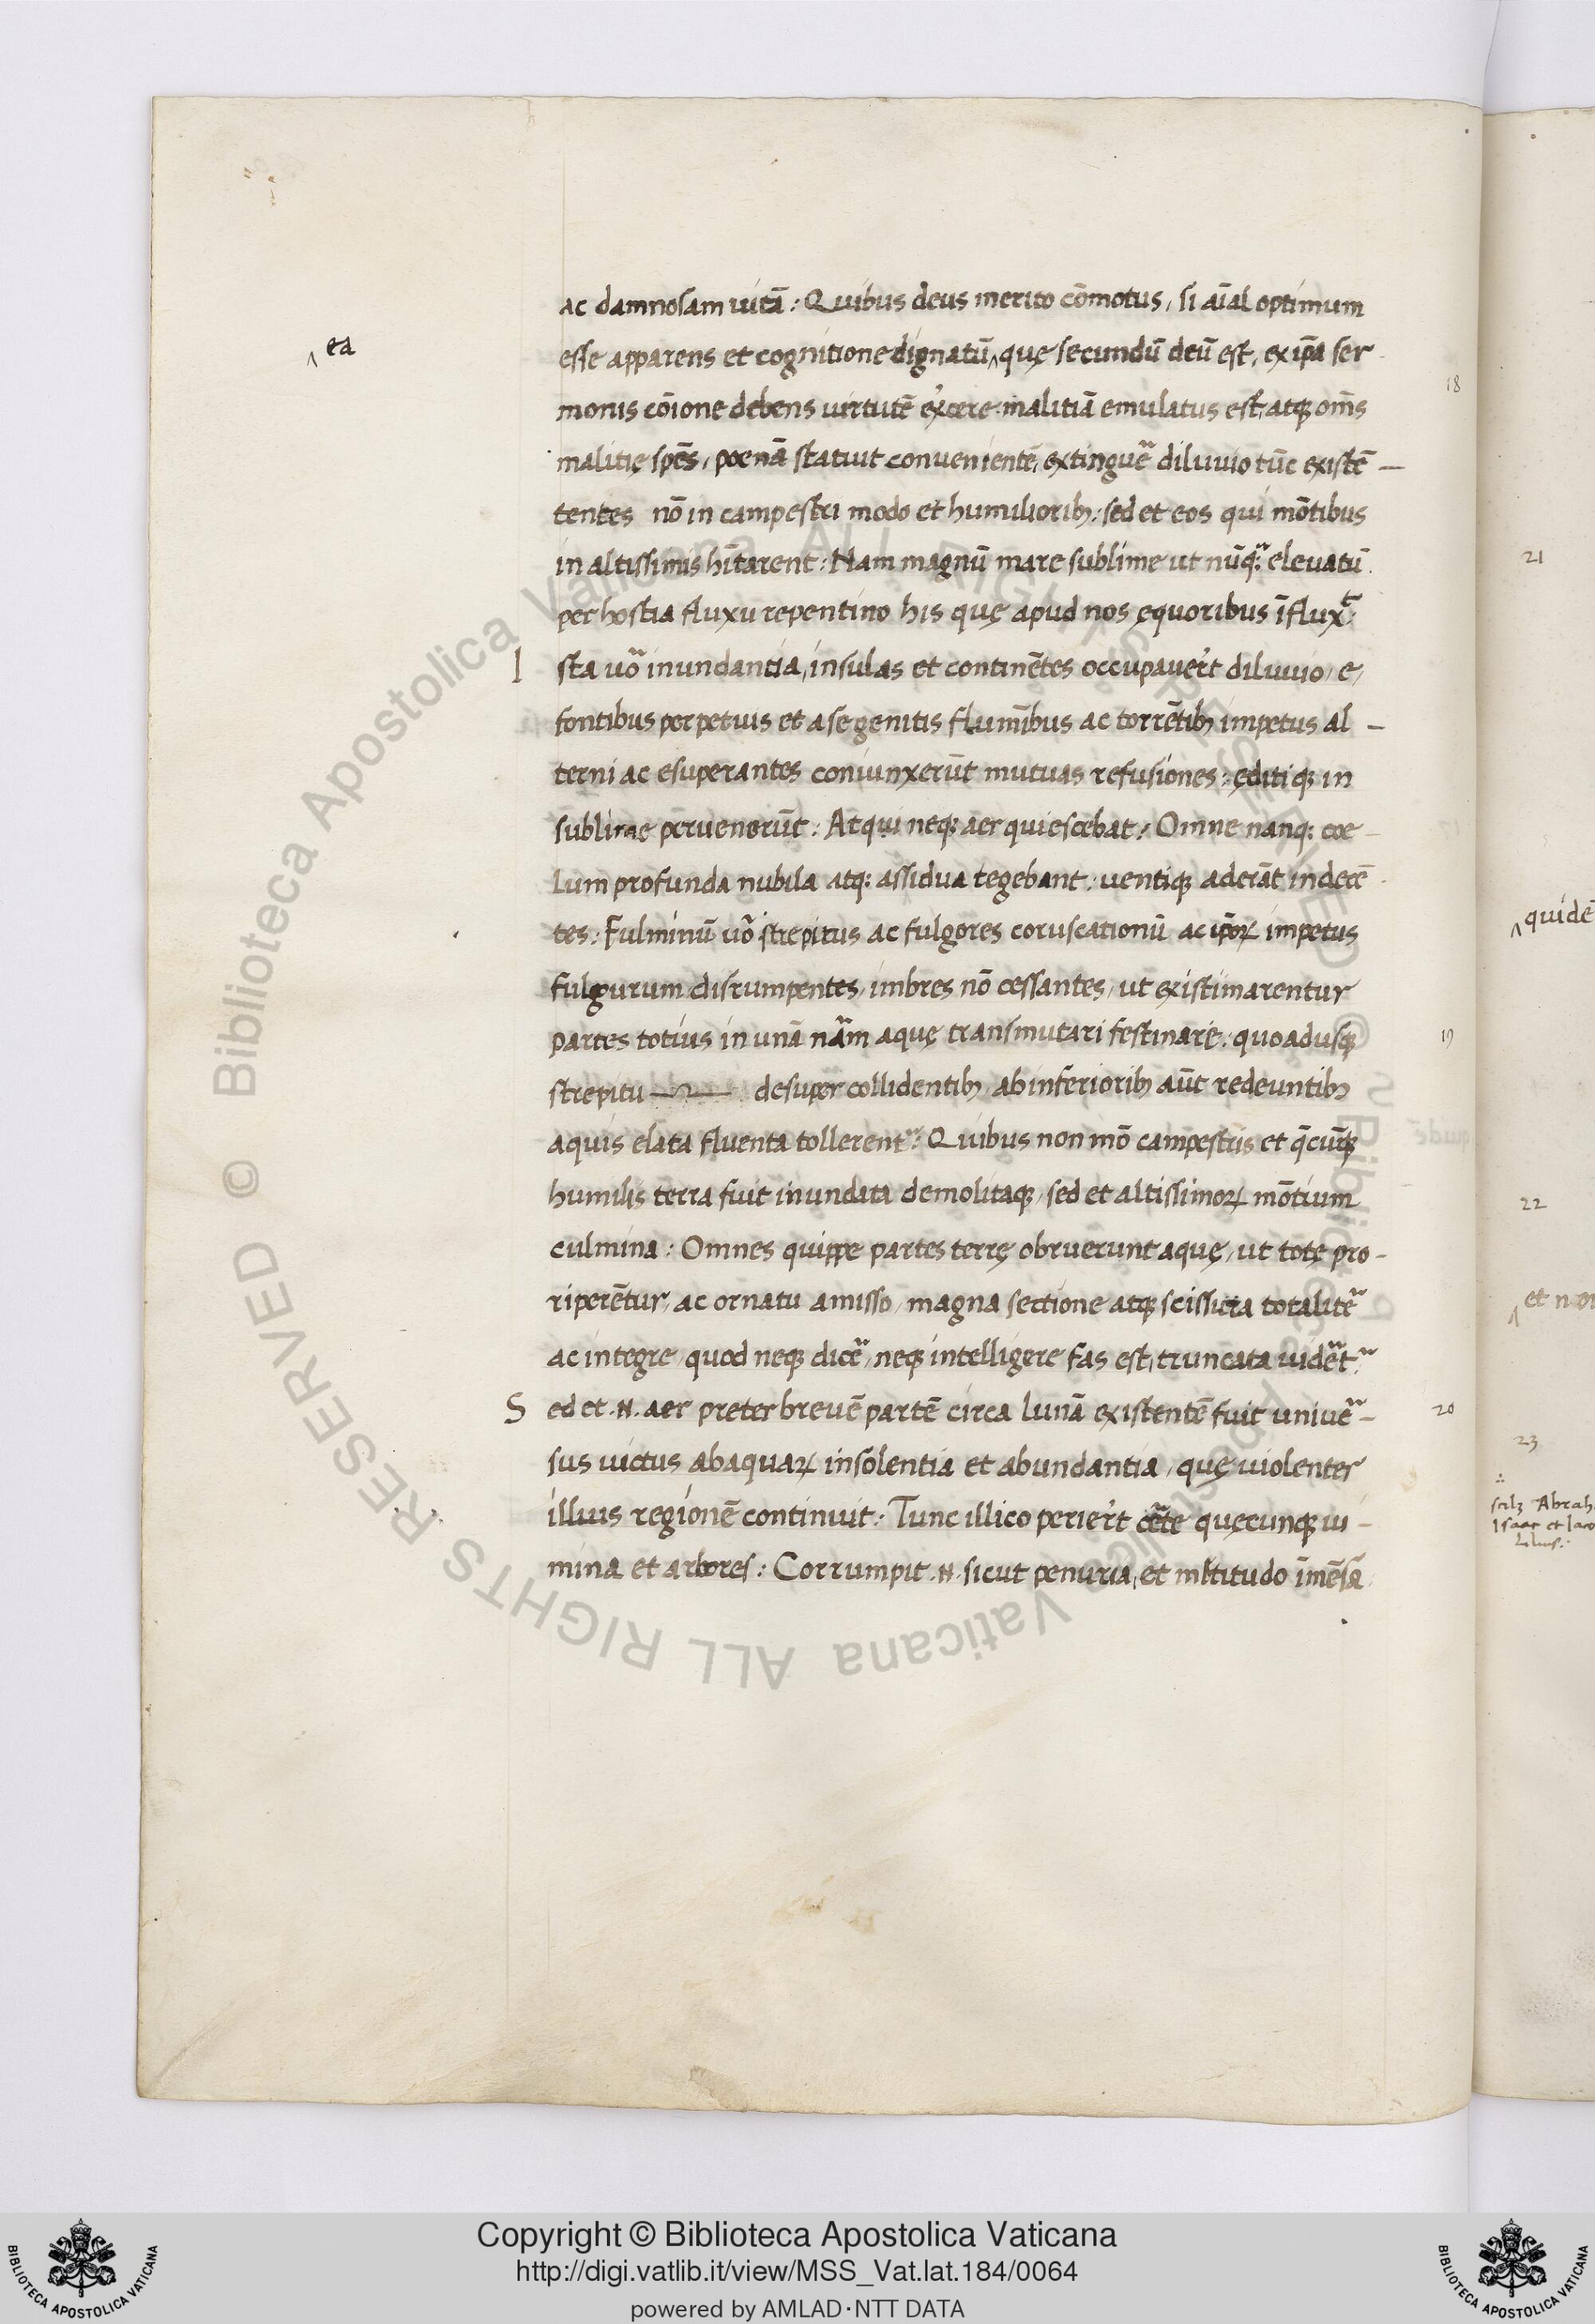 ac damnosam uitā: Quibus deus merito cōmotus, si aīal optimum
‸ ea
esse apparens et cognitione dignatū‸ quę secundū deū est, ex ip̄a ser
monis cōione debens uirtutē ex̓cere malitiā emulatus est, atq; om̄s
18
malitię spēs, poenā statuit conuenientē, extinguer̃ diluuio tūc existē-
tentes nō in campestri modo et humiliorib;: sed et eos qui mōtibus
in altissimis hītarent: Nam magnū mare sublime ut nūq;̃ eleuatū
per hostia fluxu repentino his quę apud nos ęquoribus īflux̄t:
I sta uō inundantia, insulas et continētes occupauer̄t diluuio, e,
fontibus perpetuis et a se genitis flumībus ac torrētib; impetus al-
terni ac esuperantes coniunxerūt mutuas refusiones: editiq; in
sublime peruenerūt: Atqui neq; aer quiescebat: Omne nanq; coe
lum profunda nubila atq; assidua tegebant: uentiq; aderāt indecē
tes: Fulminū uō strepitus ac fulgores coruscationū ac ip̄oꝝ impetus
fulgurum disrumpentes, imbres nō cessantes, ut existimarentur
partes totius in unā nãm aquę transmutari festinare: quoadusq;
19
strepitu desuper collidentib; ab inferiorib; aūt redeuntib;
aquis elata fluenta tollerentr̃: Quibus non mō campestris et q̄cūq;
humilis terra fuit inundata demolitaq;, sed et altissimoꝝ mōtium
culmina: Omnes quippe partes terrę obruerunt aquę, ut totę pro-
riperētur, ac ornatu amisso, magna sectione atq; scissura totaliter̃
ac integre, quod neq; dicer̃, neq; intelligere fas est, truncata uider̃tr̃
S ed et .N. aer preter breuē partē circa lunā existentē fuit uniuer̃-
20
sus uictus ab aquaꝝ insolentia et abundantia, quę uiolenter
illius regionē continuit: Tunc illico perier̄t cer̃te quęcunq; ui-
mina et arbores: Corrumpit .N. sicut penuria, et mltitudo īmēsa
21
‸ quidē
22
23
scilz Abrah
Isaac et Iaco
Copyright © Biblioteca Apostolica Vaticana
http://digi.vatlib.it/view/MSS_Vat.lat.184/0064
powered by AMLAD·NTT DATA
BIBLIOTECA APOSTOLICA VATICANA
BIBLIOTECA APOSTOLICA VATICANA